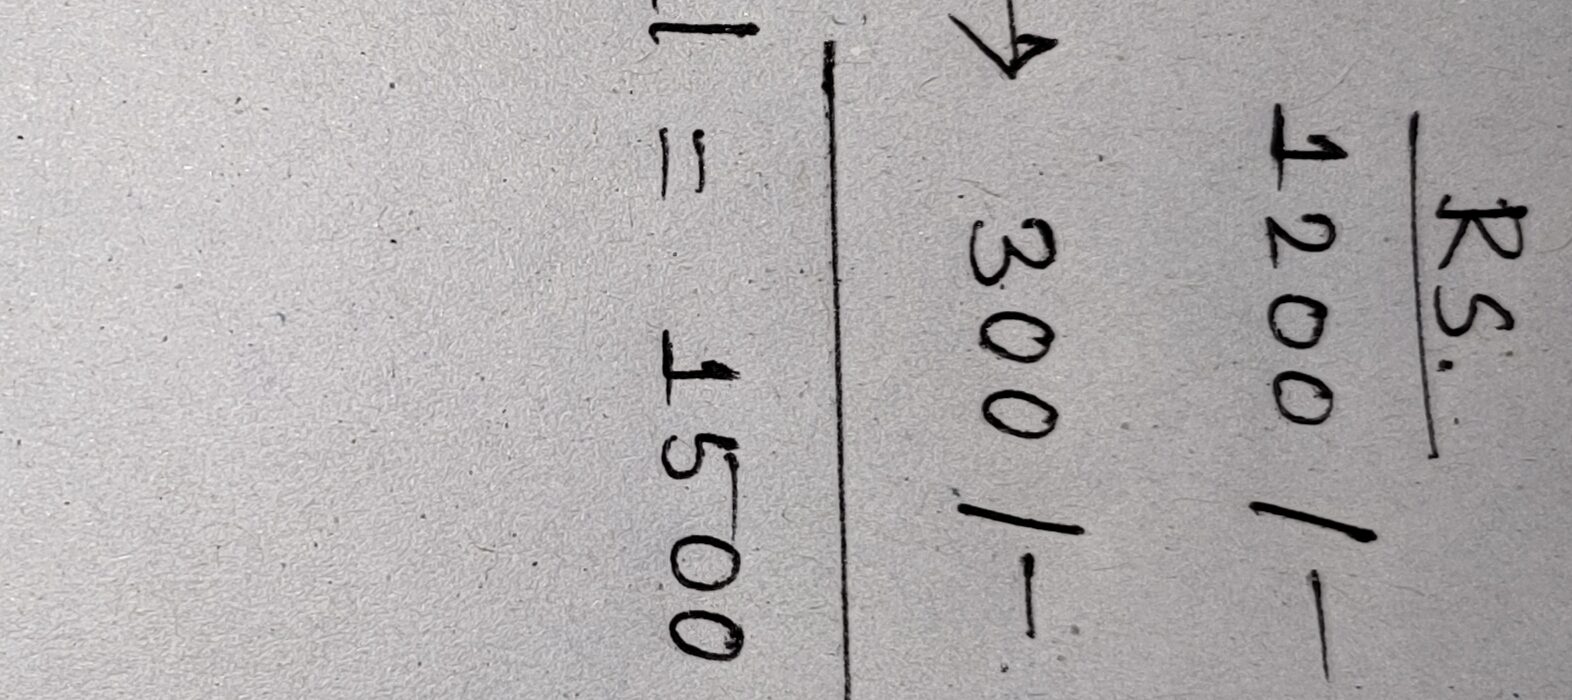 RS.
1200/-
→ 300/-
l = 1500